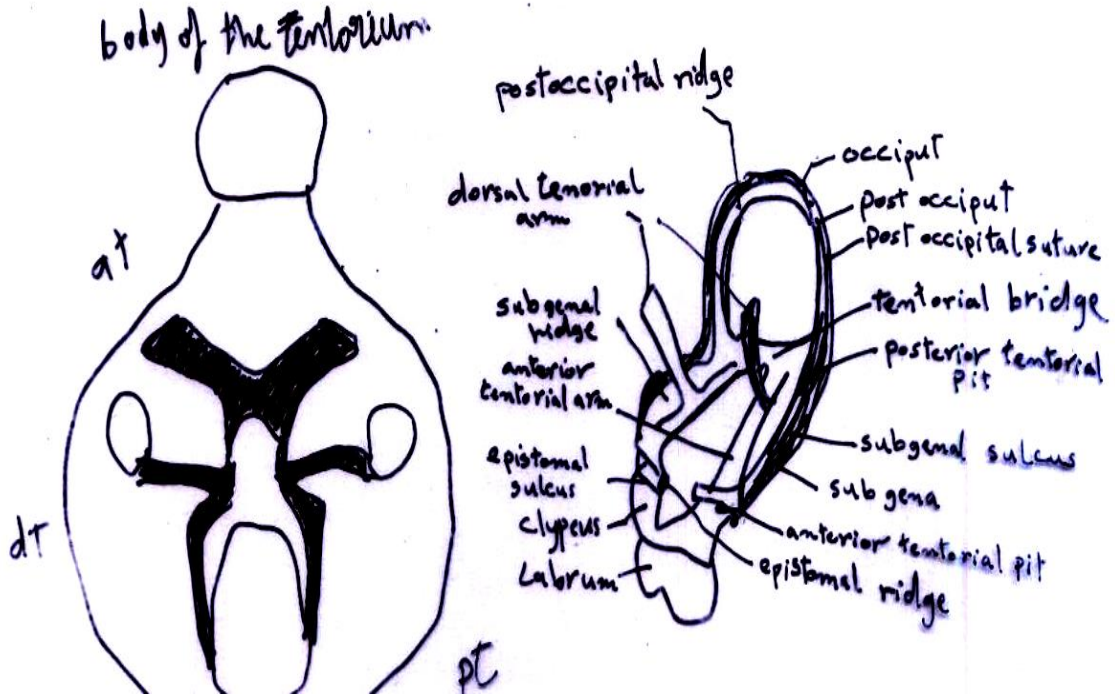 body of the tentorium.
at
dt
pt
postoccipital ridge
dorsal tenorial
arm
subgenal
ridge
anterior
tentorial arm
epistomal
sulcus
clypeus
Labrum
occiput
post occiput
post occipital suture
tentorial bridge
posterior tentorial
pit
subgenal sulcus
sub gena
anterior tentorial pit
epistomal ridge